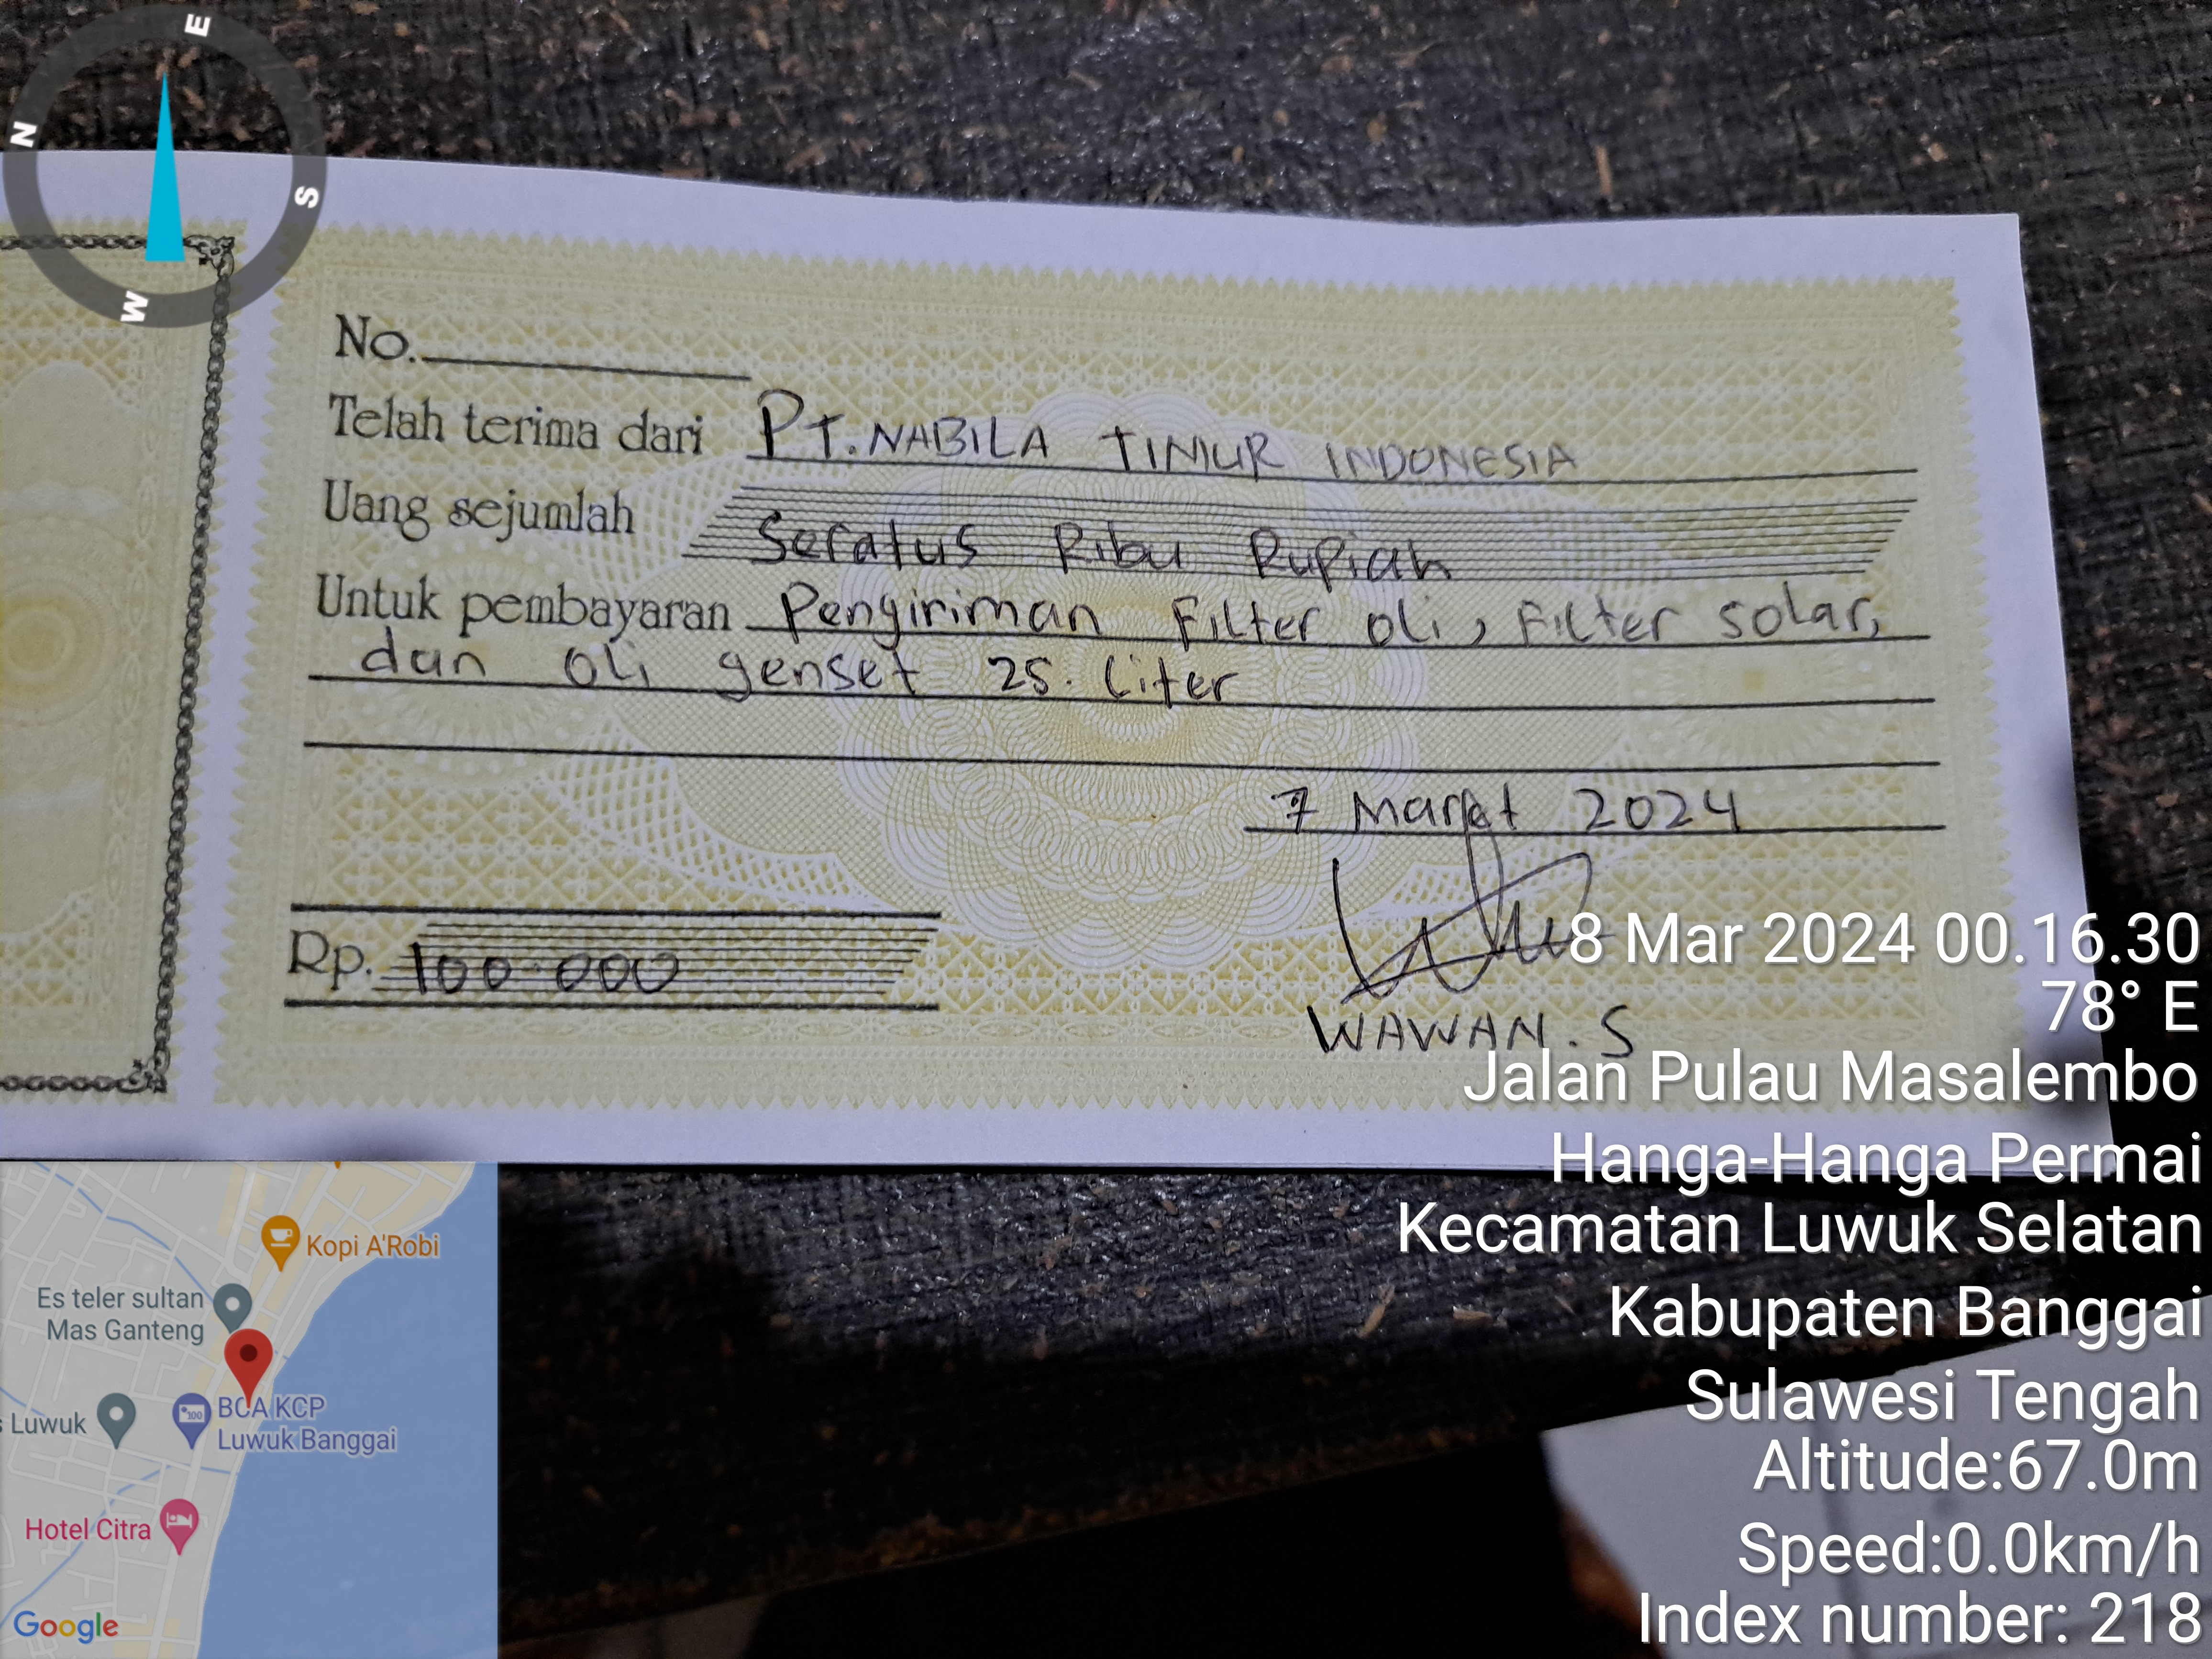 E
N
S
W
No.
Telah terima dari PT. NABILA TIMUR INDONESIA
Uang sejumlah Seratus Ribu Rupiah
Untuk pembayaran Pengiriman Filter oli, Filter solar,
dan oli genset 25. Liter
7 Maret 2024
Rp. 100.000
WAWAN. S
8 Mar 2024 00.16.30
78° E
Jalan Pulau Masalembo
Hanga-Hanga Permai
Kecamatan Luwuk Selatan
Kabupaten Banggai
Sulawesi Tengah
Altitude:67.0m
Speed:0.0km/h
Index number: 218
Kopi A'Robi
Es teler sultan
Mas Ganteng
BCA KCP
Luwuk Banggai
s Luwuk
Hotel Citra
Google